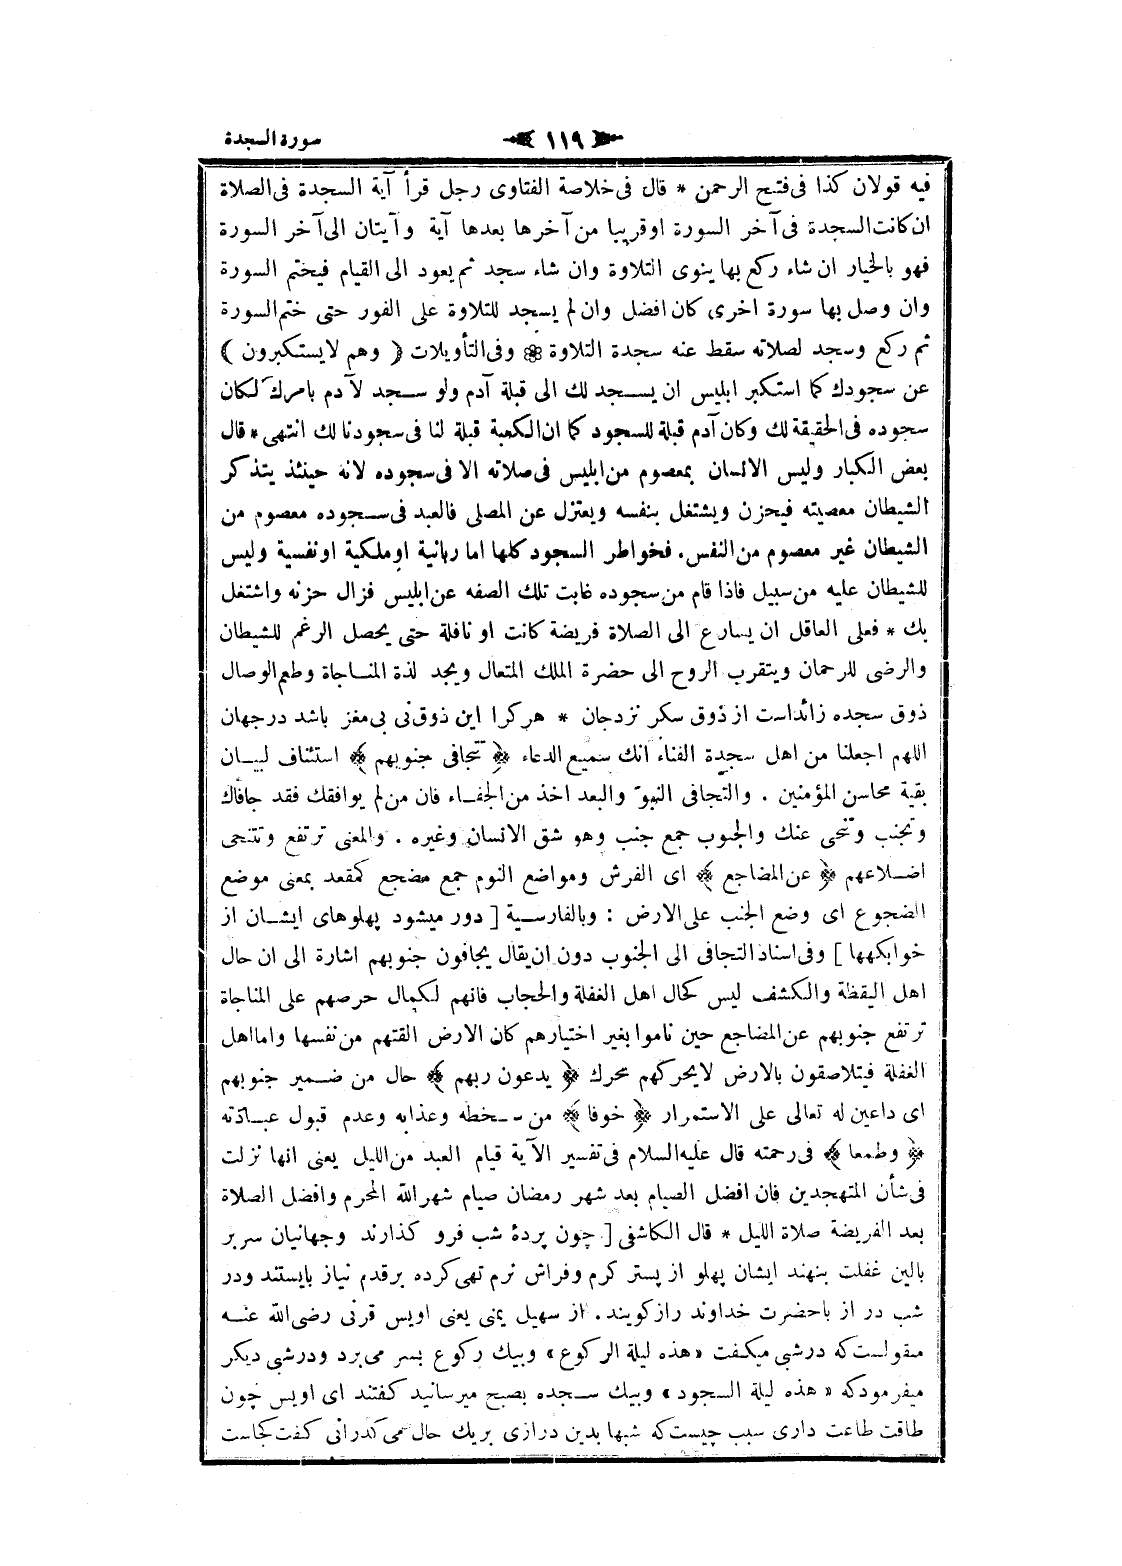 سورة السجدة
١١٩
فيه قولان كذا فى فتح الرحمن * قال فى خلاصة الفتاوى رجل قرأ آية السجدة فى الصلاة
ان كانت السجدة فى آخر السورة او قريبا من آخرها بعدها آية وآيتان الى آخر السورة
فهو بالخيار ان شاء ركع بها ينوى التلاوة وان شاء سجد ثم يعود الى القيام فيختم السورة
وان وصل بها سورة اخرى كان افضل وان لم يسجد للتلاوة على الفور حتى ختم السورة
ثم ركع وسجد لصلاته سقط عنه سجدة التلاوة ❊ وفى التأويلات ( وهم لايستكبرون )
عن سجودك كما استكبر ابليس ان يسجد لك الى قبلة آدم ولو سجد لآدم بامرك لكان
سجوده فى الحقيقة لك وكان آدم قبلة للسجود كما ان الكعبة قبلة لنا فى سجودنا لك انتهى * قال
بعض الكبار وليس الانسان بمعصوم من ابليس فى صلاته الا فى سجوده لانه حينئذ يتذكر
الشيطان معصيته فيحزن ويشتغل بنفسه ويعتزل عن المصلى فالعبد فى سجوده معصوم من
الشيطان غير معصوم من النفس. فخواطر السجود كلها اما ربانية او ملكية او نفسية وليس
للشيطان عليه من سبيل فاذا قام من سجوده غابت تلك الصفه عن ابليس فزال حزنه واشتغل
بك * فعلى العاقل ان يسارع الى الصلاة فريضة كانت او نافلة حتى يحصل الرغم للشيطان
والرضى للرحمان ويتقرب الروح الى حضرة الملك المتعال ويجد لذة المناجاة وطعم الوصال
ذوق سجده زائداست از ذوق سكر نزدجان * هركرا اين ذوق نى بى مغز باشد درجهان
اللهم اجعلنا من اهل سجدة الفناء انك سميع الدعاء ﴿ تتجافى جنوبهم ﴾ استئناف لبيان
بقية محاسن المؤمنين . والتجافى النبوّ والبعد اخذ من الجفاء فان من لم يوافقك فقد جافاك
وتجنب وتنحى عنك والجنوب جمع جنب وهو شق الانسان وغيره . والمعنى ترتفع وتتنحى
اضلاعهم ﴿ عن المضاجع ﴾ اى الفرش ومواضع النوم جمع مضجع كمقعد بمعنى موضع
الضجوع اى وضع الجنب على الارض : وبالفارسية [ دور ميشود پهلوهاى ايشان از
خوابكهها ] وفى اسناد التجافى الى الجنوب دون ان يقال يجافون جنوبهم اشارة الى ان حال
اهل اليقظة والكشف ليس كحال اهل الغفلة والحجاب فانهم لكمال حرصهم على المناجاة
ترتفع جنوبهم عن المضاجع حين ناموا بغير اختيارهم كان الارض القتهم من نفسها واما اهل
الغفلة فيتلاصقون بالارض لايحركهم محرك ﴿ يدعون ربهم ﴾ حال من ضمير جنوبهم
اى داعين له تعالى على الاستمرار ﴿ خوفا ﴾ من سخطه وعذابه وعدم قبول عبادته
﴿ وطمعا ﴾ فى رحمته قال عليه السلام فى تفسير الآية قيام العبد من الليل يعنى انها نزلت
فى شأن المتهجدين فان افضل الصيام بعد شهر رمضان صيام شهر الله المحرم وافضل الصلاة
بعد الفريضة صلاة الليل * قال الكاشفى [ چون پردهٔ شب فرو كذارند وجهانيان سربر
بالين غفلت بنهند ايشان پهلو از بستر كرم وفراش نرم تهى كرده برقدم نياز بايستند ودر
شب دراز باحضرت خداوند رازكويند . از سهيل يمنى يعنى اويس قرنى رضى الله عنه
منقولست كه درشبى ميكفت «هذه ليلة الركوع» وبيك ركوع بسر مى برد ودرشبى ديكر
ميفرمودكه « هذه ليلة السجود » وبيك سجده بصبح ميرسانيد كفتند اى اويس چون
طاقت طاعت دارى سبب چيست كه شبها بدين درازى بريك حال مى كذرانى كفت كجاست